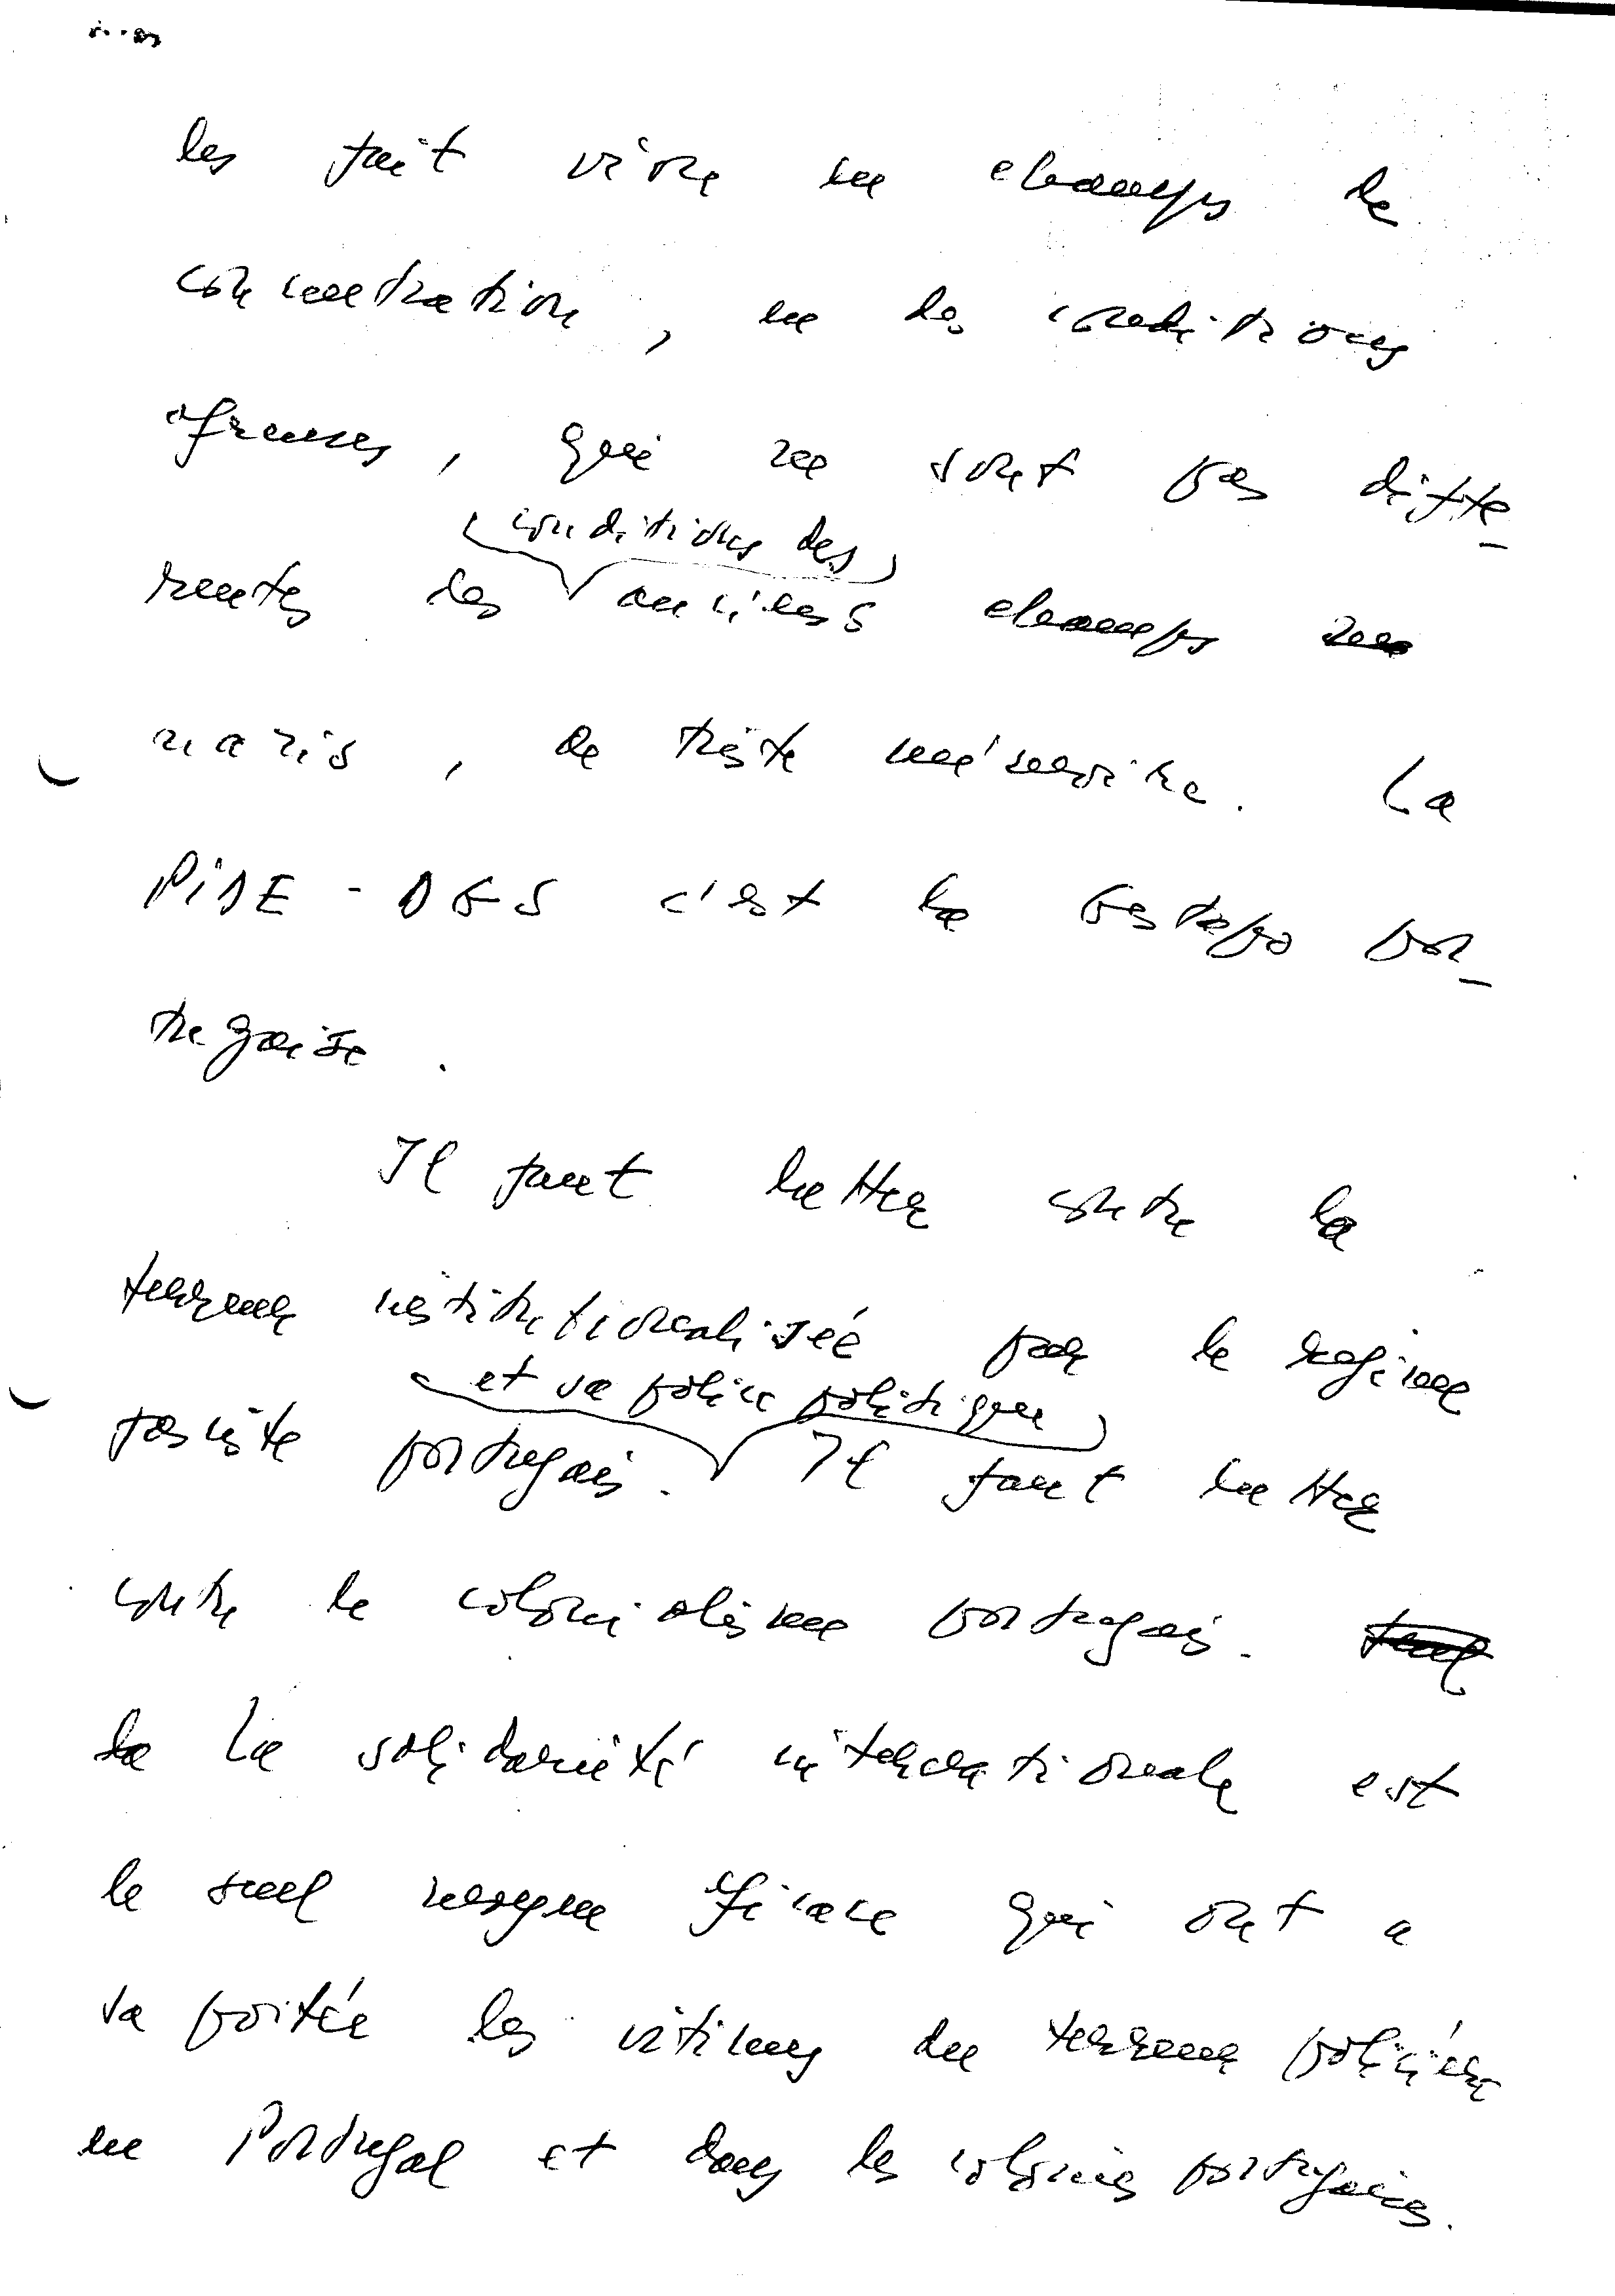 les fait vivre en champs de
concentration, en des conditions
afreuses, qui ne sont pas diffe-
conditions des
rentes des anciens champs
nazis, de triste mémoire. La
PIDE - DGS c'est la Gestapo por-
tugaise.
Il faut lutter contre la
terreur institutionalisée par le regime
et sa police politique
fasciste portugais. Il faut lutter
contre le colonialisme portugais.
la La solidarieté internationale est
le seul moyen eficace qui ont a
sa portée les vitimes du terreur policière
en Portugal et dans les colonies portugaises.